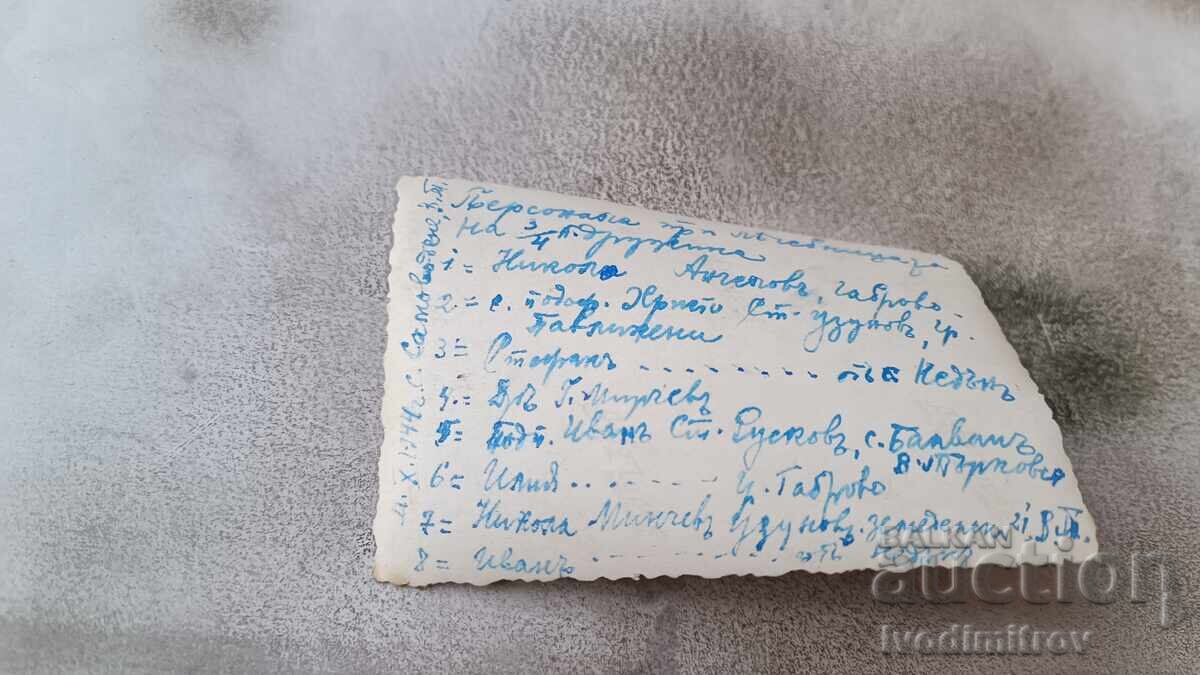 Персонала при лѣчебницата
на 3/4 п. дружина
1= Никола Ангеловъ, Габрово
2= с. подоф. Христо Ст. Узуновъ, гр.
Павликени
3= Стефанъ . . . . . . . . отъ
4= Д-ръ Г. Мирчевъ
5= Подп. Иванъ Ст. Русковъ, с. Балванъ,
В. Търновско
6= Илия . . . . . . . Габрово
7= Никола Минчевъ Узуновъ
8= Иванъ . . . . . . . отъ
X. 1944 г. с.
BALKAN
auction
ivodimitrov